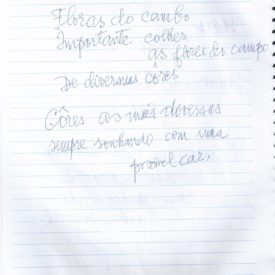 Floras do cambo
Importante colhes
as flores do campo
De diversas côres
Côres as más diversas
sempre sonhando com uma